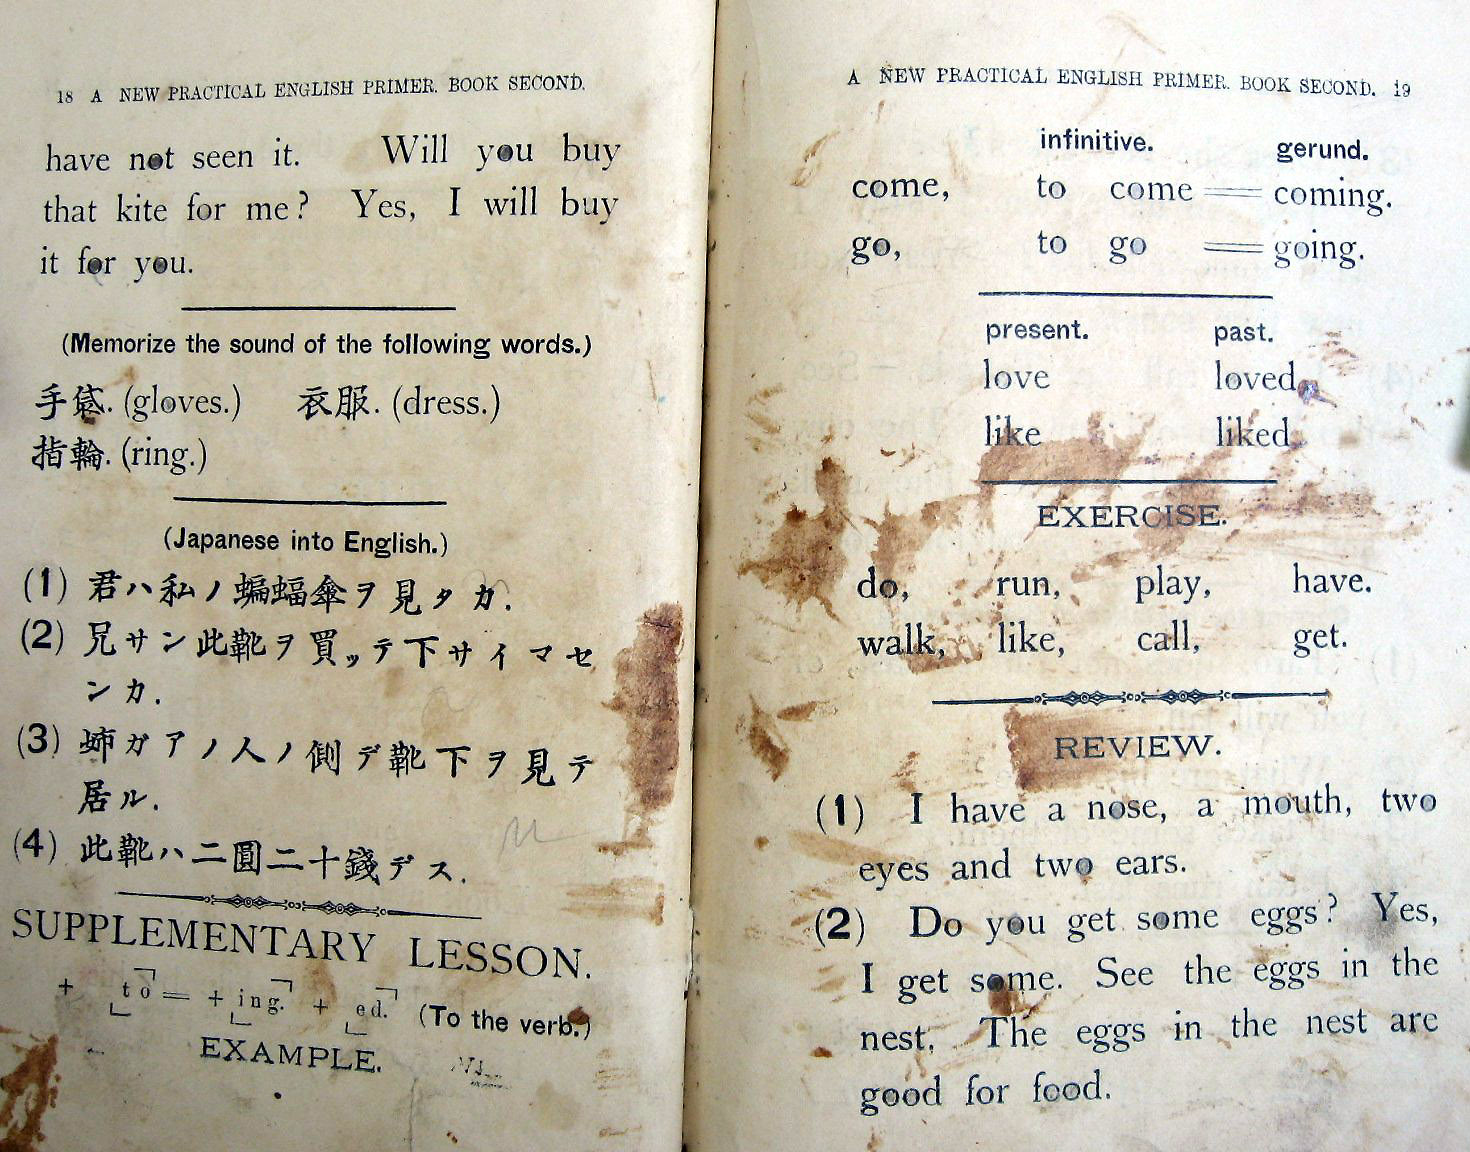 18 A NEW PRACTICAL ENGLISH PRIMER. BOOK SECOND.
have not seen it. Will you buy
that kite for me? Yes, I will buy
it for you.
(Memorize the sound of the following words.)
手袋. (gloves.) 衣服. (dress.)
指輪. (ring.)
(Japanese into English.)
(1) 君ハ私ノ蝙蝠傘ヲ見タカ.
(2) 兄サン此靴ヲ買ッテ下サイマセ
ンカ.
(3) 姉ガアノ人ノ側デ靴下ヲ見テ
居ル.
(4) 此靴ハ二圓二十錢デス.
SUPPLEMENTARY LESSON.
+ 「to」= +「ing.」 +「ed.」 (To the verb.)
EXAMPLE.
A NEW PRACTICAL ENGLISH PRIMER. BOOK SECOND. 19
infinitive. gerund.
come, to come = coming.
go, to go = going.
present. past.
love loved
like liked
EXERCISE.
do, run, play, have.
walk, like, call, get.
REVIEW.
(1) I have a nose, a mouth, two
eyes and two ears.
(2) Do you get some eggs? Yes,
I get some. See the eggs in the
nest. The eggs in the nest are
good for food.